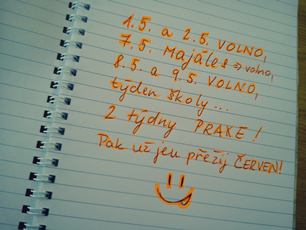 1.5. a 2.5. VOLNO,
7.5. Majáles => volno,
8.5. a 9.5. VOLNO,
týden školy...
2 týdny PRAXE!
Pak už jen přežij ČERVEN!